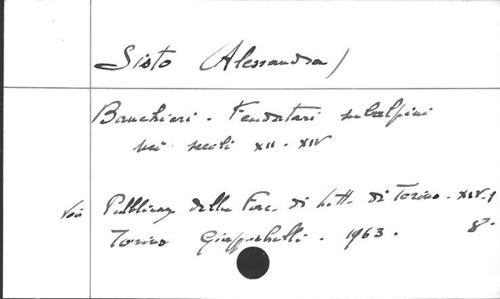 Sisto (Alessandra)
Banchieri - Feudatari subalpini
nei secoli XII - XIV
Vedi Pubblicaz. della Fac. di Lett. di Torino - XIV-1
Torino Giappichelli. 1963. 8°